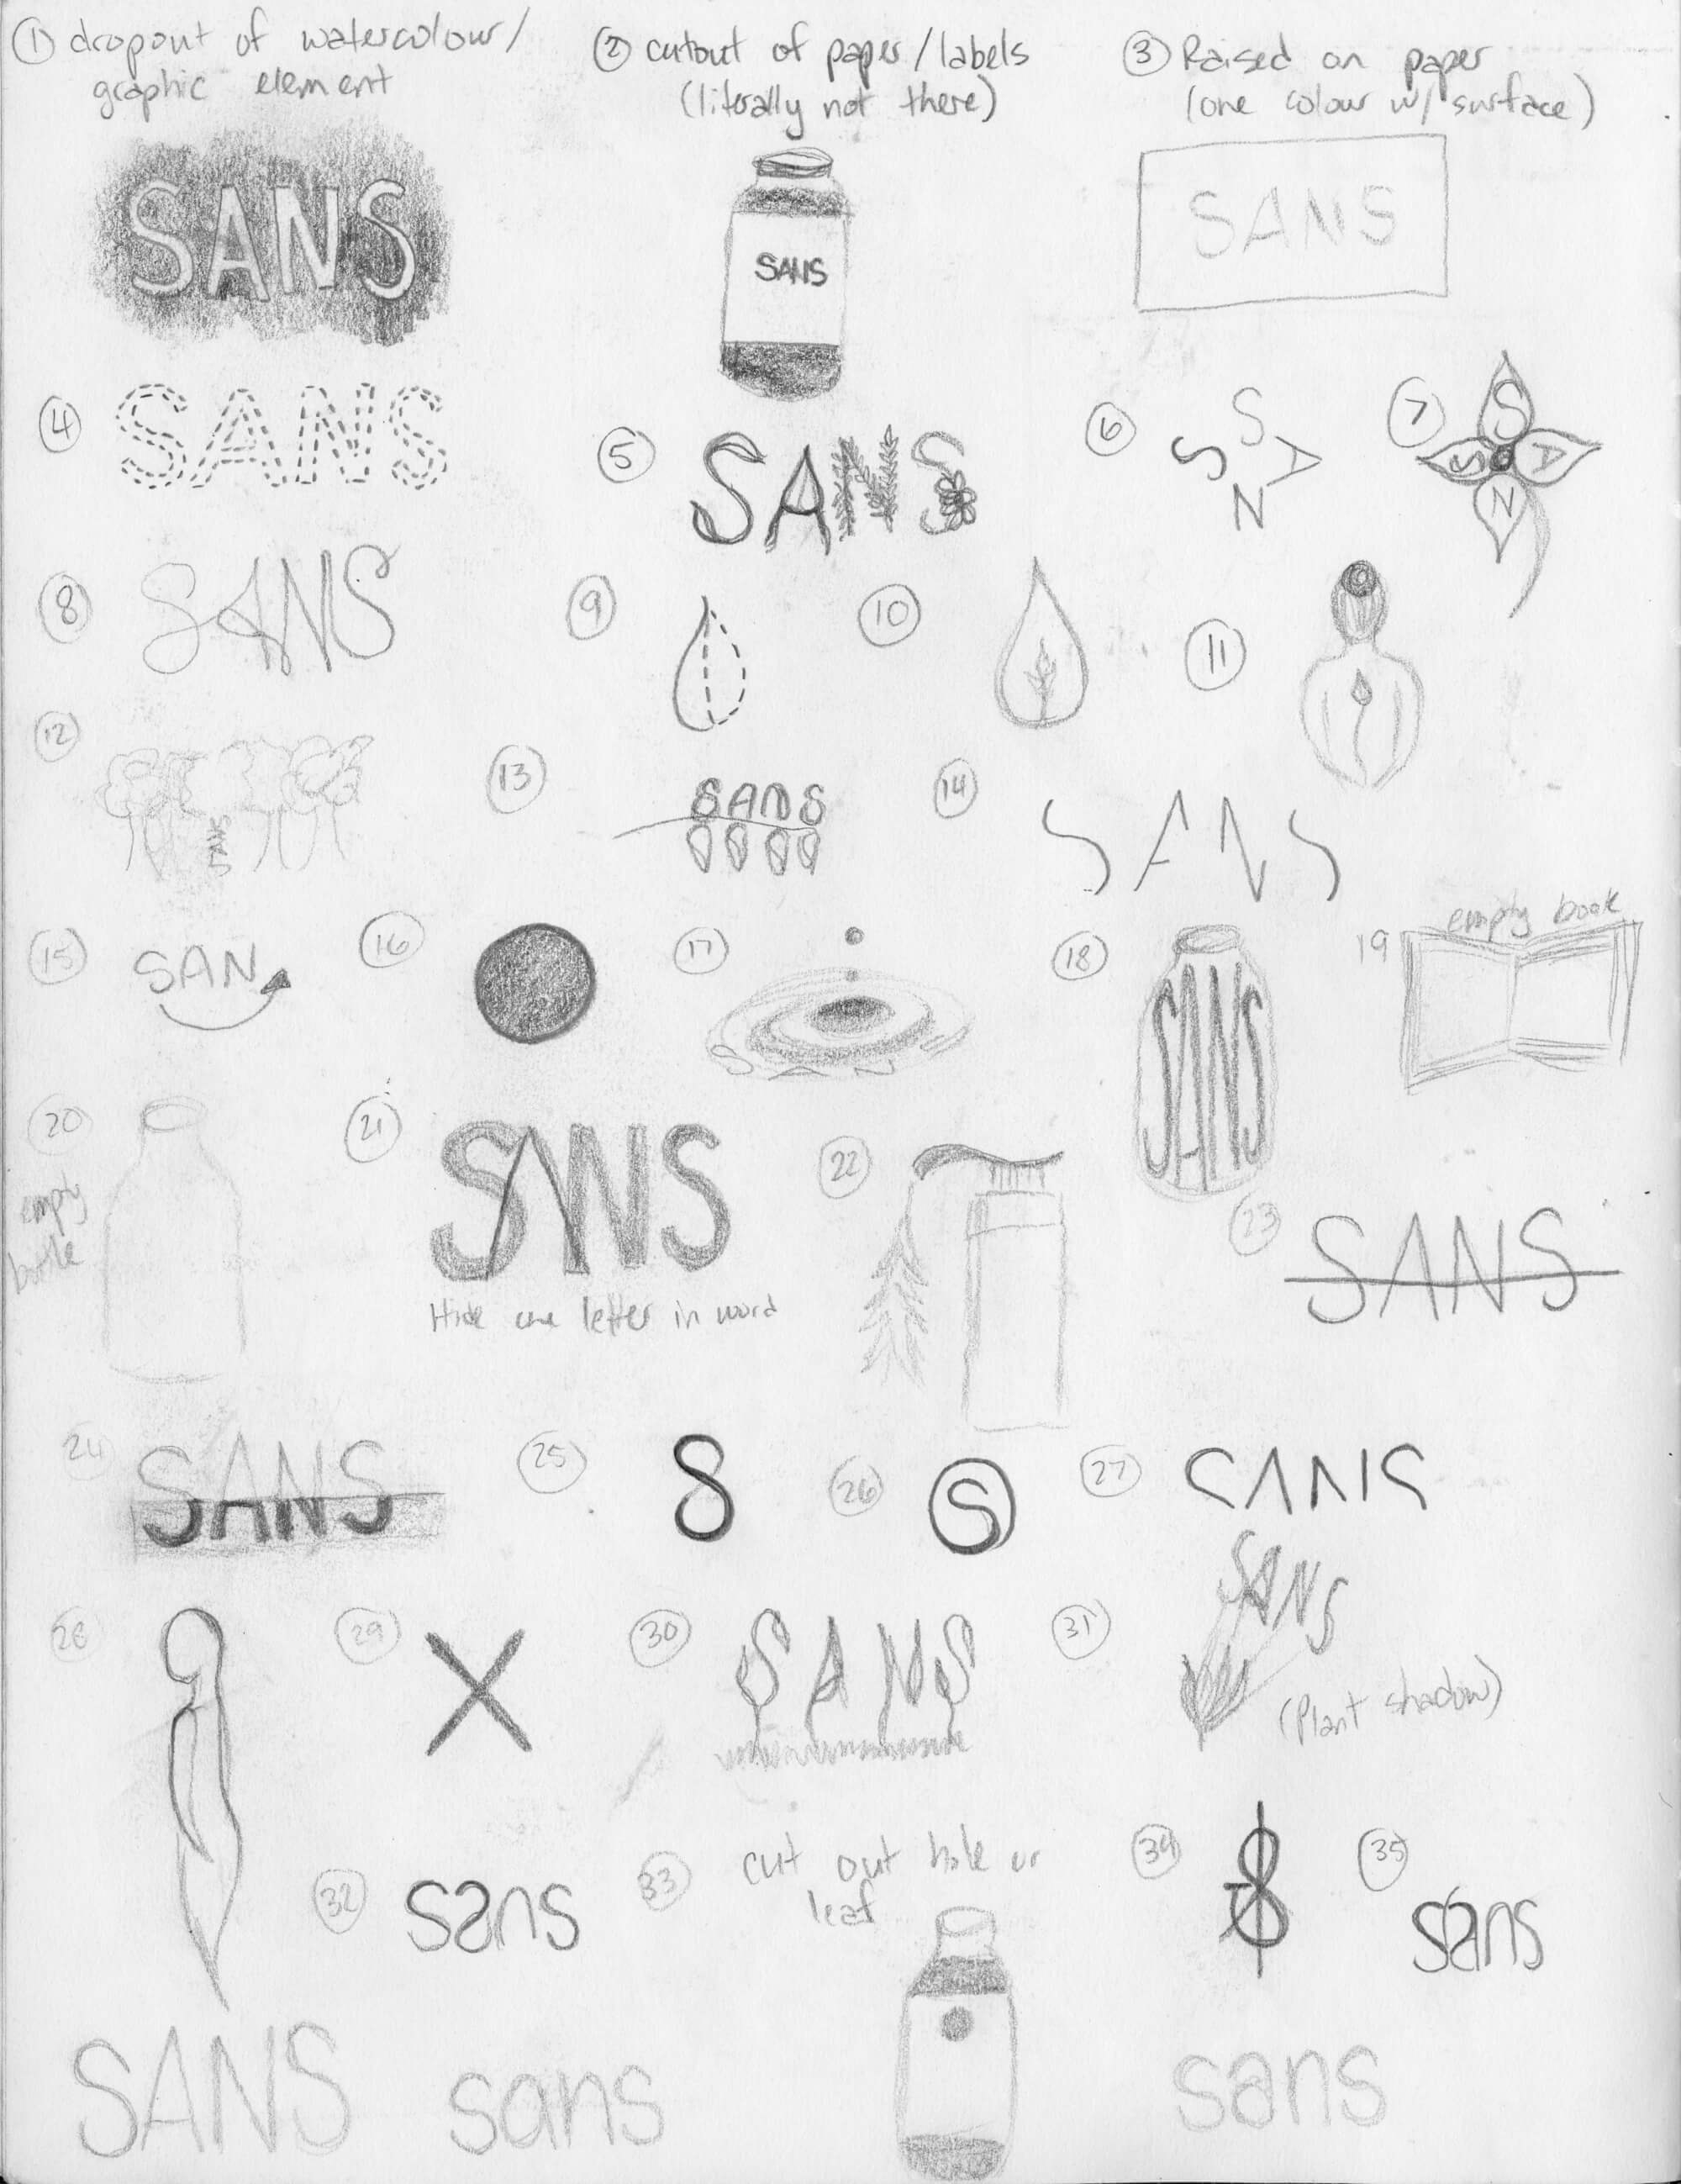 ① dropout of watercolour/
graphic element
SANS
② cutout of paper/labels
(literally not there)
SANS
③ Raised on paper
(one colour w/ surface)
SANS
④ SANS
⑤ SANS
⑥ S
S A
N
⑦ S
S A
N
⑧ SANS
⑨
⑩
⑪
⑫ SANS
⑬ SANS
⑭ SANS
⑮ SAN
⑯
⑰ S A N
⑱ SANS
19 empty book
20
empty
bottle
㉑ SANS
Hide one letter in word
㉒
㉓ SANS
24 SANS
㉕ S
㉖ S
㉗ SANS
28
㉙ X
㉚ SANS
㉛ SANS
(Plant shadow)
㉜ sans
㉝ cut out hole or
leaf
㉞
㉟ sans
SANS sans sans